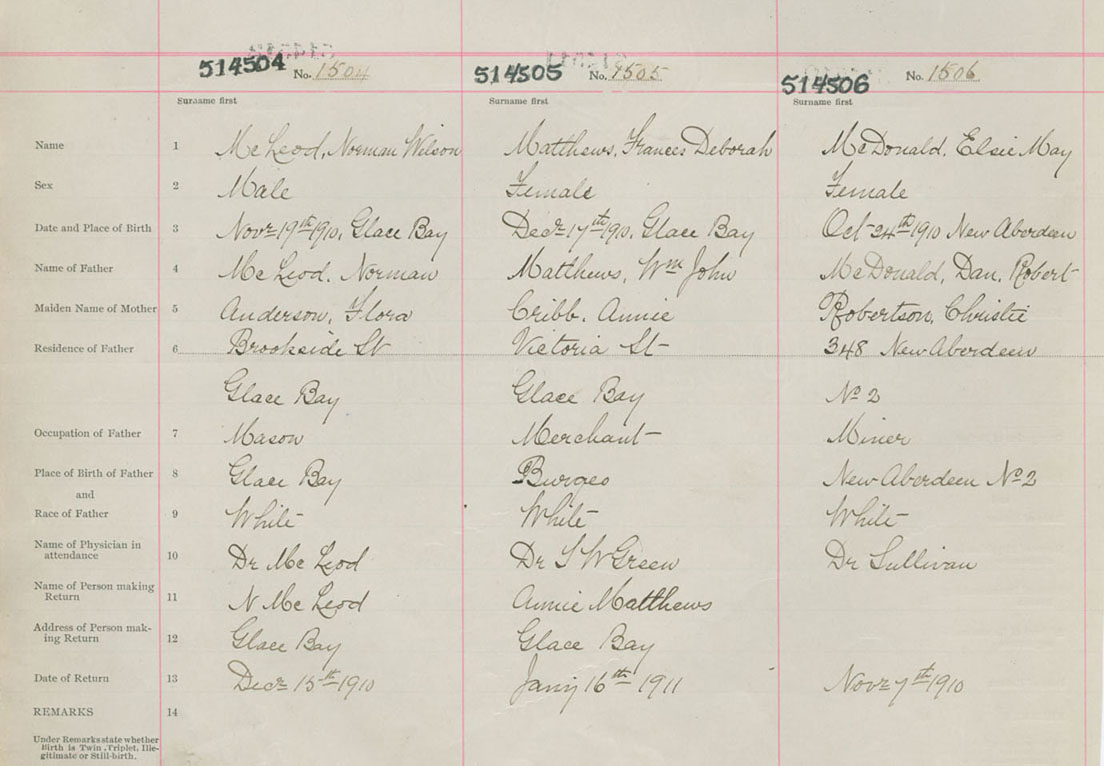 514504 No. 1504 514505 No. 1505 514506 No. 1506
Surname first Surname first Surname first
Name 1 McLeod, Norman Wilson Matthews, Frances Deborah McDonald, Elsie May
Sex 2 Male Female Female
Date and Place of Birth 3 Novr 19th 1910, Glace Bay Decr 17th 1910, Glace Bay Oct 24th 1910 New Aberdeen
Name of Father 4 McLeod, Norman Matthews, Wm John McDonald, Dan, Robert
Maiden Name of Mother 5 Anderson, Flora Cribb, Annie Robertson, Christie
Residence of Father 6 Brookside St Victoria St 348 New Aberdeen
Glace Bay Glace Bay No 2
Occupation of Father 7 Mason Merchant Miner
Place of Birth of Father 8 Glace Bay Burgeo New Aberdeen No 2
and
Race of Father 9 White White White
Name of Physician in
attendance 10 Dr McLeod Dr S W Green Dr Sullivan
Name of Person making
Return 11 N McLeod Annie Matthews
Address of Person mak-
ing Return 12 Glace Bay Glace Bay
Date of Return 13 Decr 15th 1910 Jany 16th 1911 Novr 7th 1910
REMARKS 14
Under Remarks state whether
Birth is Twin, Triplet, Ille-
gitimate or Still-birth.